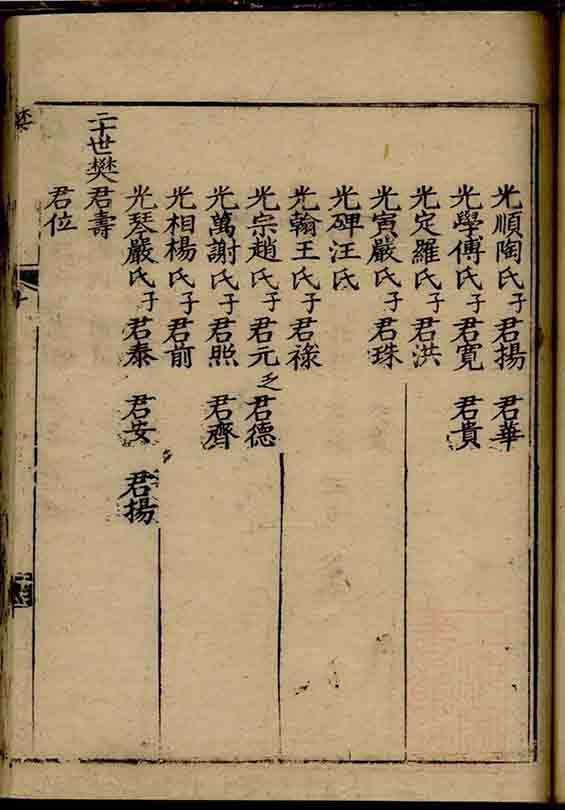 光順陶氏子君揚 君華
光學傅氏子君寬 君貴
光定羅氏子君洪
光寅嚴氏子君珠
光碑汪氏
光翰王氏子君祿
光宗趙氏子君元乏君德
光萬謝氏子君照 君齊
光相楊氏子君前
光琴嚴氏子君泰 君安 君揚
二十世樊君壽
君位